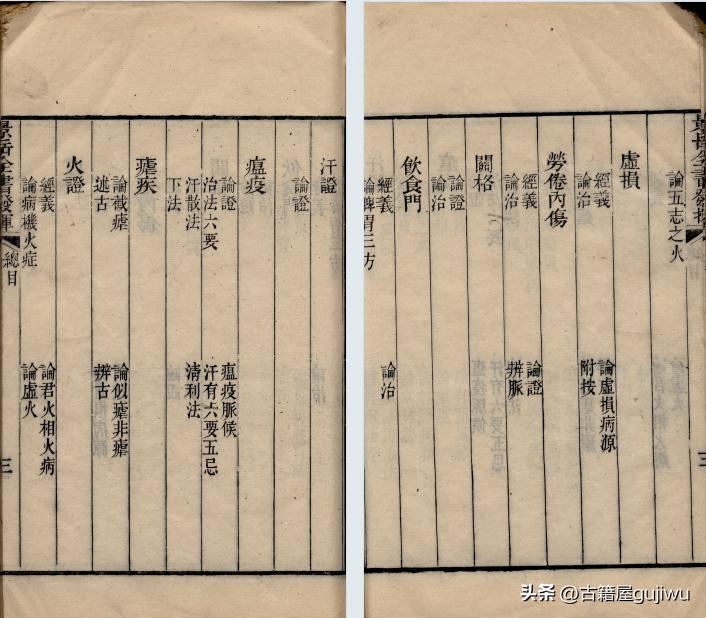 汗證
論證
瘟疫
論證　瘟疫脈候
治法六要　汗有六要五忌
汗散法　清利法
下法
瘧疾
論截瘧　論似瘧非瘧
述古　辨古
火證
經義　論君火相火病
論病機火症　論虛火
景岳全書發揮　總目　三
景岳全書發揮　三
論五志之火
虛損
經義　論虛損病源
論治　附按
勞倦內傷
經義　論證
論治　辨脈
關格
論證
論治
飲食門
經義　論治
論脾胃三方
头条 @古籍屋gujiwu